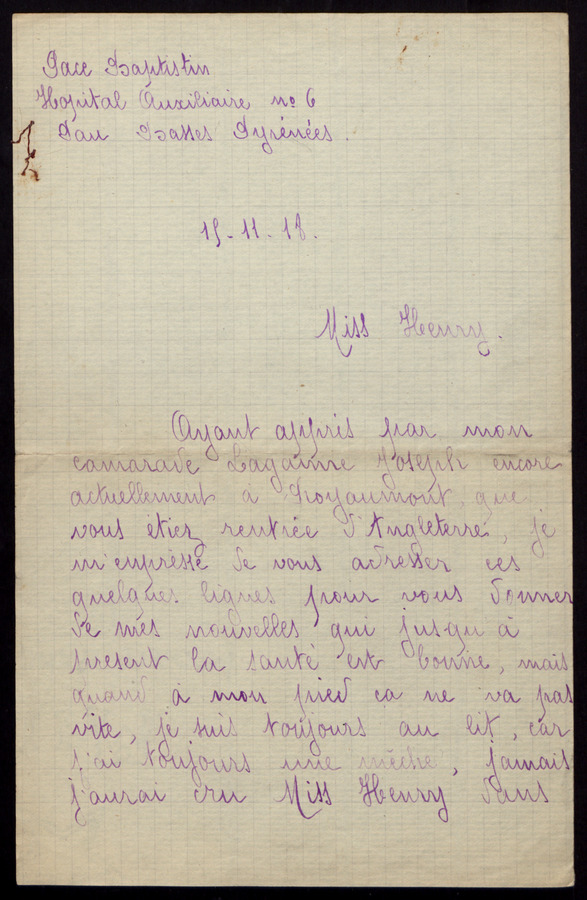 Pace Baptistin
Hopital Auxiliaire no 6
Pau Basses Pyrénées.
15-11-18.
Miss Henry.
Ayant appris par mon
camarade Joseph encore
actuellement à Royaumont que
vous étiez rentrée d'Angleterre, je
m'empresse de vous adresser ces
quelques lignes pour vous donner
de mes nouvelles qui jusqu'à
present la santé est bonne, mais
quand à mon pied ca ne va pas
vite, je suis toujours au lit, car
j'ai toujours une mèche, jamais
j'aurai cru Miss Henry dans